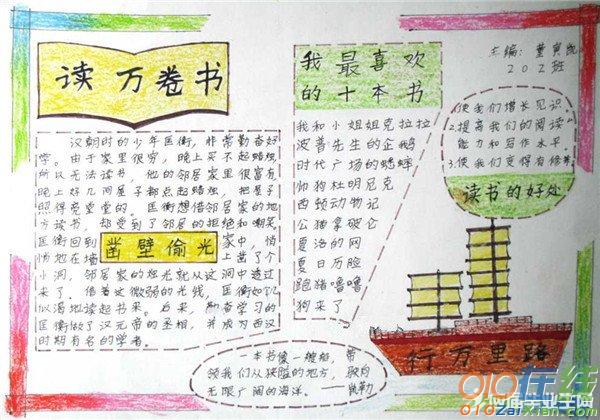 读万卷书
汉朝时的少年匡衡，非常勤奋好
学。由于家里很穷，晚上买不起蜡烛，
所以无法读书，他的邻居家里很富有
晚上好几间屋子都点起蜡烛，把屋子
照得亮堂堂的。匡衡想借邻居家的地
方读书，却受到了邻居的拒绝和嘲笑
匡衡回到
家中，悄
悄地在墙
上凿了个
凿壁偷光
小洞，邻居家的烛光就从这洞中透过
来了，借着这微弱的光线，匡衡如饥
似渴地读起书来。后来，勤奋学习的
匡衡做了汉元帝的丞相，并成为西汉
时期有名的学者。
我最喜欢
的十本书
我和小姐姐克拉拉
波普先生的企鹅
时代广场的蟋蟀
帅狗杜明尼克
西顿动物记
公猪拿破仑
夏洛的网
夏日历险
跑猪噜噜
狗来了
主编：董
202班
使我们增长见识
2.提高我们的阅读
能力和写作水平。
3.使我们变得有修养
读书的好处
行万里路
一本书像一艘船，带
领我们从狭隘的地方，驶向
无限广阔的海洋。——凯勒
010在线
010zaixian.com